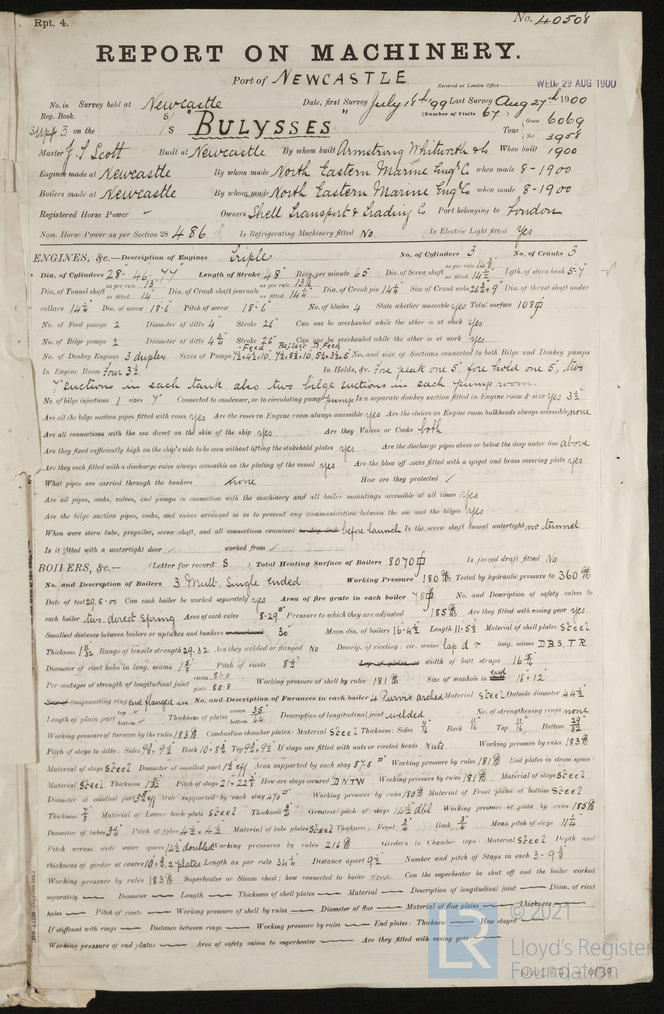 Rpt. 4.
No. 40508
REPORT ON MACHINERY.
Port of NEWCASTLE
Received at London Office WED. 29 AUG 1900
No. in Survey held at Newcastle Date, first Survey July 18th 99 Last Survey Aug 27th 1900
Reg. Book. (Number of Visits 67) Gross 6069
on the S/S "BULYSSES" Tons Net 3958
Master J. S. Scott Built at Newcastle By whom built Armstrong Whitworth & Co When built 1900
Engines made at Newcastle By whom made North Eastern Marine Engg Co when made 8-1900
Boilers made at Newcastle By whom made North Eastern Marine Engg Co when made 8-1900
Registered Horse Power Owners Shell Transport & Trading Co Port belonging to London
Nom. Horse Power as per Section 28 486 Is Refrigerating Machinery fitted No Is Electric Light fitted Yes
ENGINES, &c.—Description of Engines Triple No. of Cylinders 3 No. of Cranks 3
Dia. of Cylinders 28" 46" 77" Length of Stroke 48" Revs. per minute 65 Dia. of Screw shaft as per rule as fitted 14½ Lgth. of stern bush 5-7"
Dia. of Tunnel shaft as per rule 13" as fitted 14 Dia. of Crank shaft journals as per rule as fitted 14¼ Dia. of Crank pin 14¼" Size of Crank webs Dia. of thrust shaft under
collars 14¼" Dia. of screw 18-6" Pitch of screw 18-6" No. of blades 4 State whether moveable yes Total surface 108
No. of Feed pumps 2 Diameter of ditto 4" Stroke 26" Can one be overhauled while the other is at work yes
No. of Bilge pumps 2 Diameter of ditto Stroke 26" Can one be overhauled while the other is at work yes
No. of Donkey Engines 3 duplex Sizes of Pumps No. and size of Suctions connected to both Bilge and Donkey pumps
In Engine Room four 3½ In Holds, &c. Fore peak one 5", fore hold one 5", two
7" suctions in each tank, also two bilge suctions in each pump room.
No. of bilge injections 1 sizes 7" Connected to condenser, or to circulating pump pump Is a separate donkey suction fitted in Engine room & size yes 3½"
Are all the bilge suction pipes fitted with roses yes Are the roses in Engine room always accessible yes Are the sluices on Engine room bulkheads always accessible none
Are all connections with the sea direct on the skin of the ship yes Are they Valves or Cocks both
Are they fixed sufficiently high on the ship's side to be seen without lifting the stokehold plates yes Are the discharge pipes above or below the deep water line above
Are they each fitted with a discharge valve always accessible on the plating of the vessel yes Are the blow off cocks fitted with a spigot and brass covering plate yes
What pipes are carried through the bunkers none How are they protected
Are all pipes, cocks, valves, and pumps in connection with the machinery and all boiler mountings accessible at all times yes
Are the bilge suction pipes, cocks, and valves arranged so as to prevent any communication between the sea and the bilges yes
When were stern tube, propeller, screw shaft, and all connections examined in dry dock before launch Is the screw shaft tunnel watertight no tunnel
Is it fitted with a watertight door worked from
BOILERS, &c.— (Letter for record S ) Total Heating Surface of Boilers 8070 Is forced draft fitted No
No. and Description of Boilers 3 Mult. Single ended Working Pressure 180 lbs Tested by hydraulic pressure to 360 lbs
Date of test 29.5.00 Can each boiler be worked separately yes Area of fire grate in each boiler No. and Description of safety valves to
each boiler two direct spring Area of each valve 8.29" Pressure to which they are adjusted 185 lbs Are they fitted with easing gear yes
Smallest distance between boilers or uptakes and bunkers 30" Mean dia. of boilers 16-4½ Length 11-5½ Material of shell plates Steel
Thickness Range of tensile strength 29.32 Are they welded or flanged No Descrip. of riveting: cir. seams lap d r long. seams DBS. TR
Diameter of rivet holes in long. seams Pitch of rivets 8½" width of butt straps
Per centages of strength of longitudinal joint rivets 81.0 plate 80.8 Working pressure of shell by rules 181 lbs Size of manhole in end 16 × 12
compensating ring end flanged in. No. and Description of Furnaces in each boiler 4 Purvis arched Material Steel Outside diameter 44½"
Length of plain part top bottom Thickness of plates Description of longitudinal joint welded No. of strengthening rings none
Working pressure of furnace by the rules 183 lbs Combustion chamber plates: Material Steel Thickness: Sides Back Top Bottom
Pitch of stays to ditto: Sides Back Top If stays are fitted with nuts or riveted heads Nuts Working pressure by rules 183 lbs
Material of stays Steel Diameter at smallest part Area supported by each stay Working pressure by rules 181 lbs End plates in steam space:
Material Steel Thickness Pitch of stays How are stays secured DNTW Working pressure by rules 181 lbs Material of stays Steel
Diameter at smallest part Area supported by each stay Working pressure by rules Material of Front plates at bottom Steel
Thickness Material of Lower back plate Steel Thickness Greatest pitch of stays Working pressure of plate by rules 185 lbs
Diameter of tubes Pitch of tubes 4½ × 4½ Material of tube plates Steel Thickness: Front Back Mean pitch of stays
Pitch across wide water spaces Working pressures by rules 216 lbs Girders to Chamber tops: Material Steel Depth and
thickness of girder at centre Length as per rule Distance apart 9½ Number and pitch of Stays in each
Working pressure by rules 183 lbs Superheater or Steam chest; how connected to boiler None Can the superheater be shut off and the boiler worked
separately Diameter Length Thickness of shell plates Material Description of longitudinal joint Diam. of rivet
holes Pitch of rivets Working pressure of shell by rules Diameter of flue Material of flue plates Thickness
If stiffened with rings Distance between rings Working pressure by rules End plates: Thickness How stayed
Working pressure of end plates Area of safety valves to superheater Are they fitted with easing gear
LR
© 2021
Lloyd's Register
Foundation